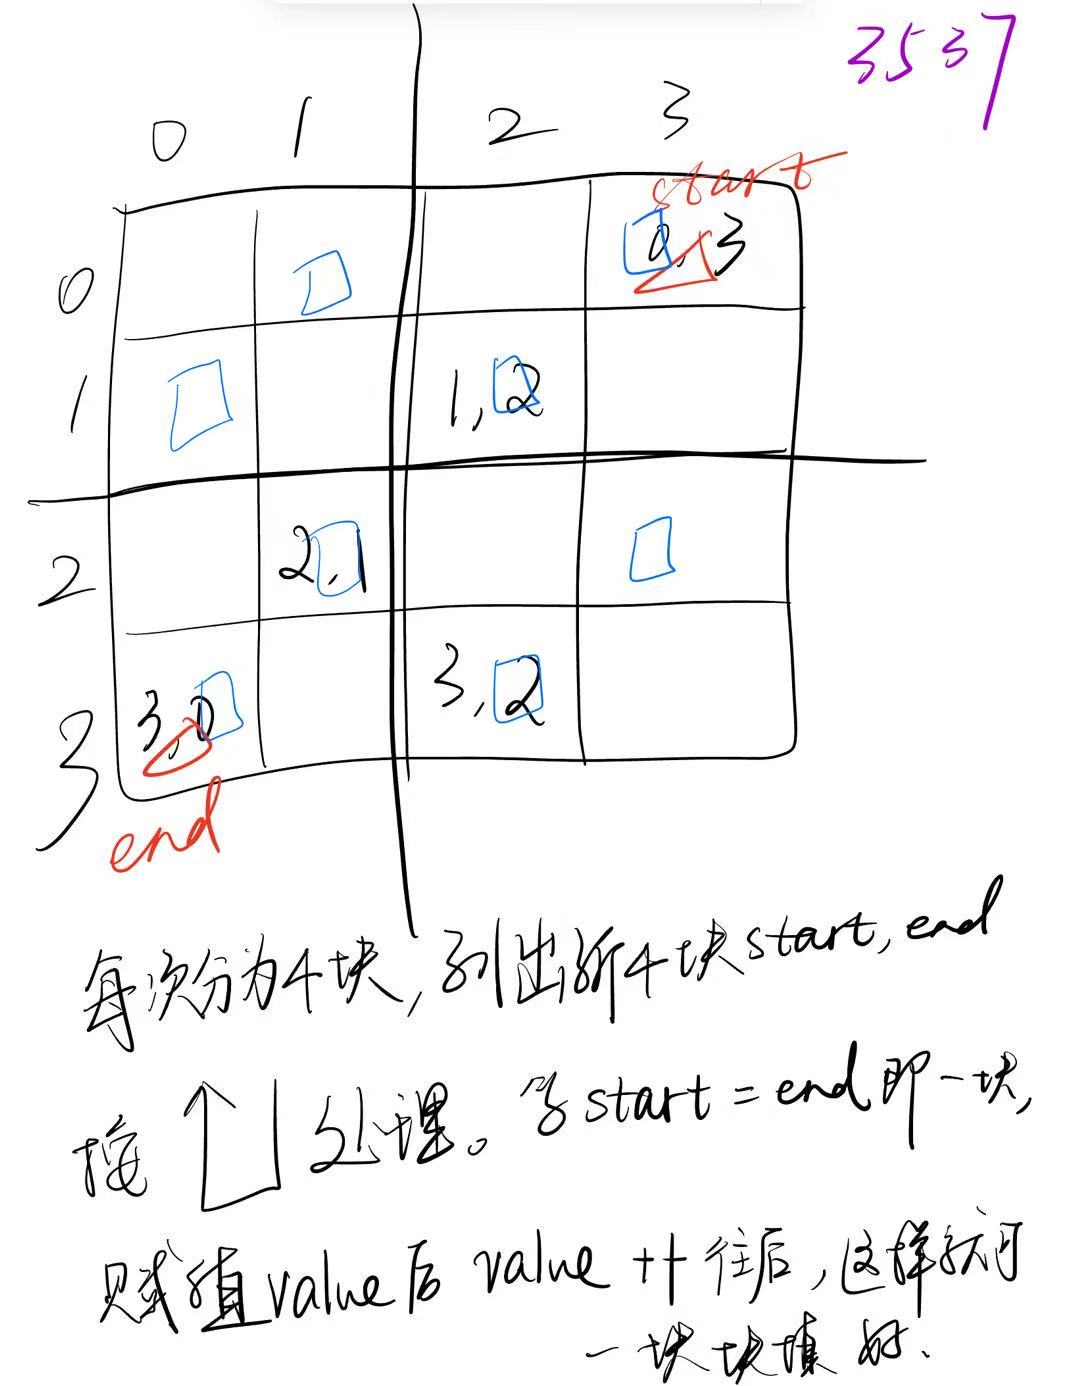 3537
0 1 2 3
start
0 0,3
1 1,2
2 2,1
3 3,0 3,2
end
每次分为4块,列出新4块start,end
按 处理。当start=end即一块,
赋值value后 value ++往后,这样就可
一块块填好.